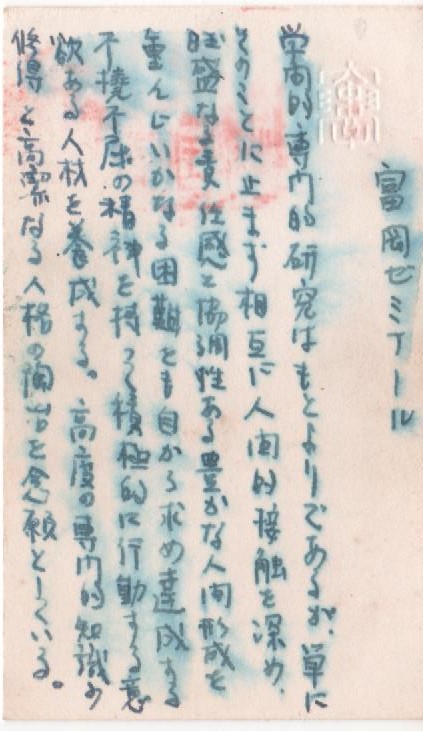 富岡ゼミナール
学問的専門的研究はもとよりであるが、単に
そのことに止まず相互に人間的接触を深め、
旺盛なる責任感と協調性ある豊かな人間形成を
重んじいかなる困難をも自から求め達成する
不撓不屈の精神を持つて積極的に行動する意
欲ある人材を養成する。高度の専門的知識の
修得と高潔なる人格の陶冶を念願としている。